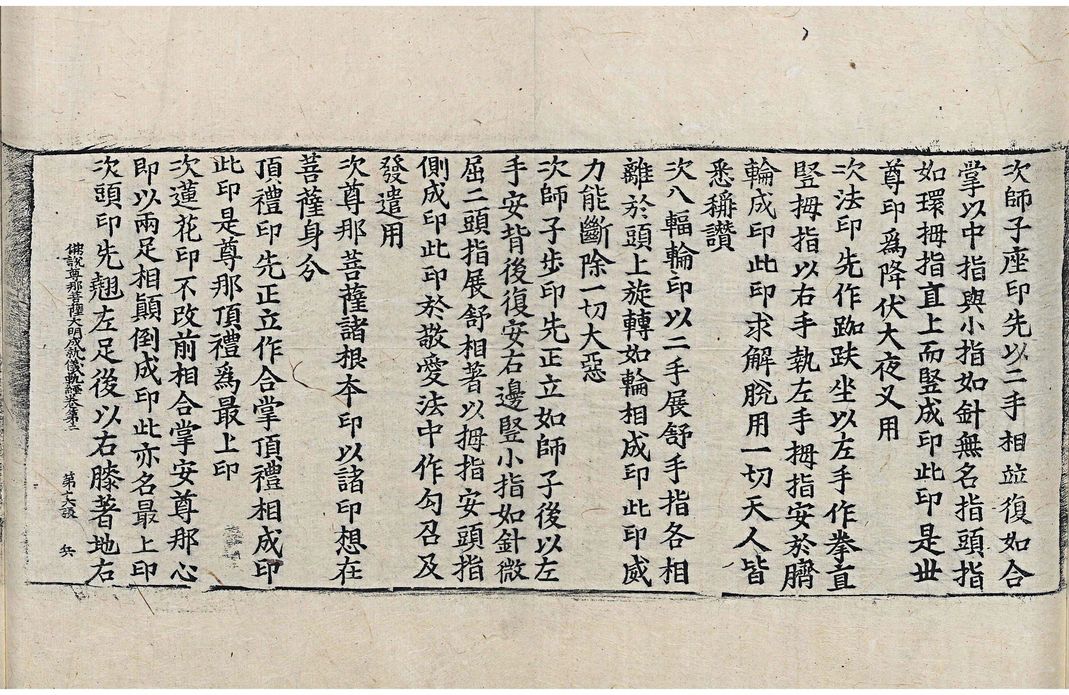 次師子座印先以二手相並復如合
掌以中指與小指如針無名指頭指
如環拇指直上而竪成印此印是丗
尊印爲降伏大夜叉用
次法印先作跏趺坐以左手作拳直
竪拇指以右手執左手拇指安於臍
輪成印此印求解脫用一切天人皆
悉稱讚
次八輻輪印以二手展舒手指各相
離於頭上旋轉如輪相成印此印威
力能斷除一切大惡
次師子步印先正立如師子後以左
手安背後復安右邊竪小指如針微
屈二頭指展舒相著以拇指安頭指
側成印此印於敬愛法中作勾召及
發遣用
次尊那菩薩諸根本印以諸印想在
菩薩身分
頂禮印先正立作合掌頂禮相成印
此印是尊那頂禮爲最上印
次蓮花印不改前相合掌安尊那心
即以兩足相顛倒成印此亦名最上印
次頭印先翹左足後以右膝著地右
佛說尊那菩薩大明成就儀軌經卷第三 第六張 兵